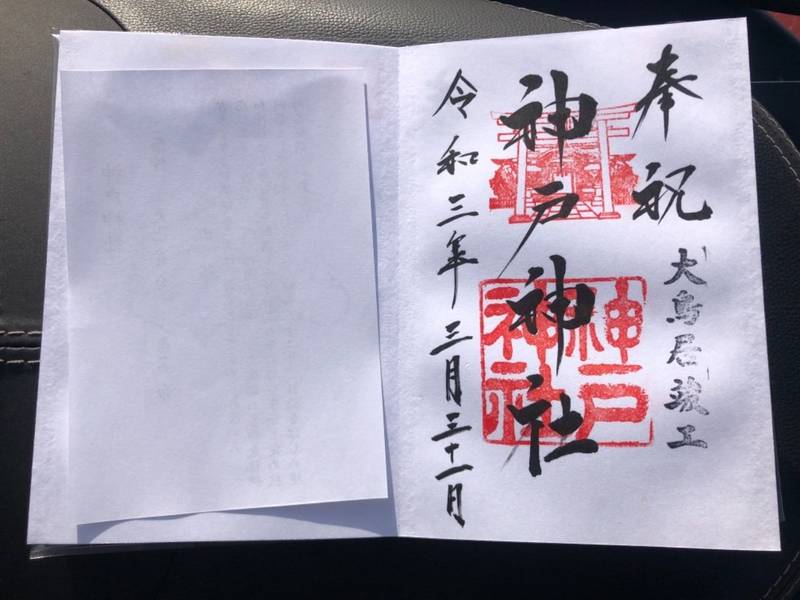 奉祝
大鳥居竣工
神戸神社
神戸
神社
令和三年三月三十一日